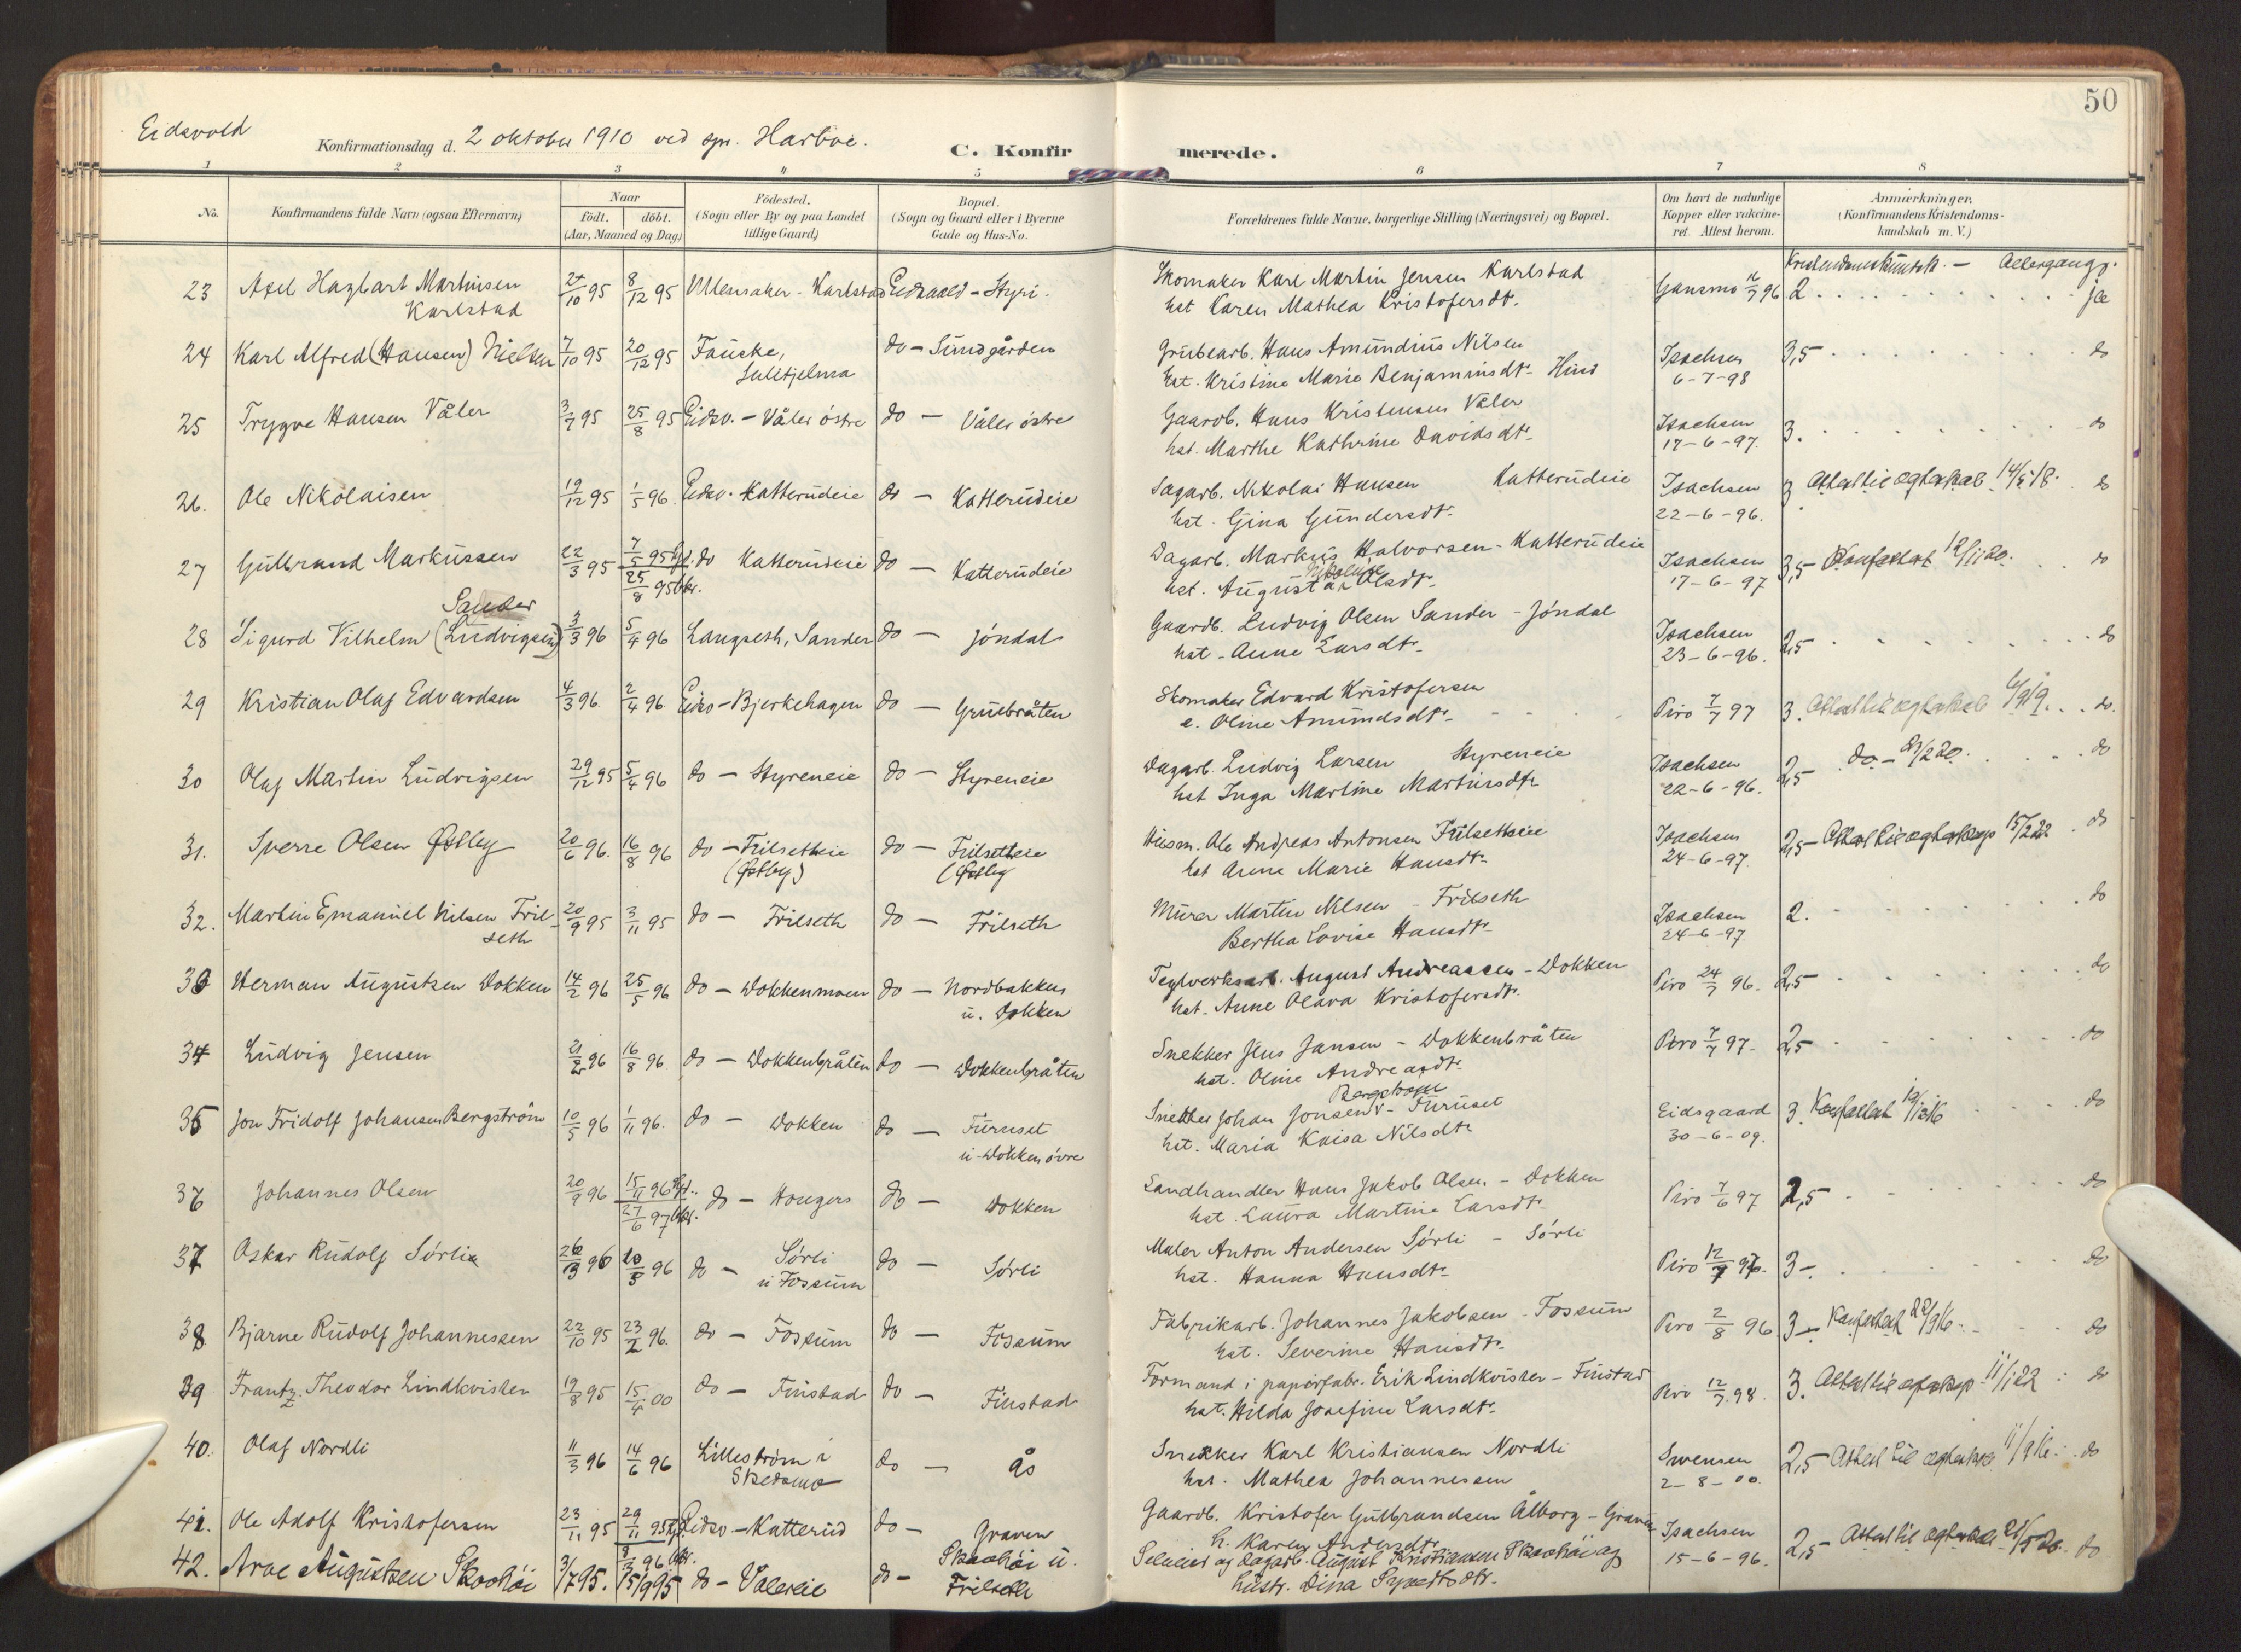 50
Eidsvold
Konfirmationsdag d. 2 oktober 1910 ved spr. Harboe.
C. Konfirmerede.
1 2 3 4 5 6 7 8
No. Konfirmandens fulde Navn (ogsaa Efternavn) Naar født. døbt. (Aar, Maaned og Dag) Fødested. (Sogn eller By og paa Landet tillige Gaard) Bopæl. (Sogn og Gaard eller i Byerne Gade og Hus-No. Forældrenes fulde Navne, borgerlige Stilling (Næringsvei) og Bopæl. Om havt de naturlige Kopper eller vakcineret. Attest herom. Anmærkninger, (Konfirmandens Kristendomskundskab m. V.)
Kristendomskundsk. — Altergang.
23 Axel Hagbart Martinsen 24/10 95 8/12 95 Ullensaker - Karlstad Eidsvold - Styri. Skomaker Karl Martin Jensen Karlstad Gansmo 16/7 96 2 ja
Karlstad hst Karen Mathea Kristofersdtr.
24 Karl Alfred (Hansen) Nielsen 7/10 95 20/12 95 Fauske, do - Sundgården Grubearb. Hans Amundius Nilsen Isachsen 3,5 do
Sulitjelma hst. Kristine Marie Benjaminsdtr. 6-7-98
25 Trygve Hansen Våler 3/7 95 25/8 95 Eidsv. - Våler østre do - Våler østre Gaardb. Hans Kristensen Våler Isachsen 3. do
hst. Marthe Kathrine Davidsdtr. 17-6-97.
26. Ole Nikolaisen 19/12 95 1/5 96. Eidsv. Katterudeie do - Katterudeie Sagarb. Nikolai Hansen Katterudeie Isachsen 3 Attest til ægteskab 14/5 18. do
hst. Gina Gundersdtr. 22-6-96.
27 Gulbrand Markussen 22/3 95 7/5 95 hjd. 25/8 95 kr. do Katterudeie do - Katterudeie Dagarb. Markus Halvorsen - Katterudeie Isachsen 3,5 Konfattest 12/11 20. do
hst. Augusta Nikoline Olsdtr. 17-6-97
28 Sigurd Vilhelm (Ludvigsen) Sander 3/3 96 5/4 96 Langseth, Sander do - Jøndal Gaardb. Ludvig Olsen Sander - Jøndal Isachsen 2,5 do
hst. Anne Larsdtr. 23-6-96.
29 Kristian Olaf Edvardsen 4/3 96. 2/4 96 Eidsv - Bjerkehagen do - Grubråten Skomaker Edvard Kristofersen Piro 7/7 97 3. Attest til ægteskab 6/9 19. do.
e. Oline Amundsdtr.
30 Olaf Martin Ludvigsen 29/12 95 5/4 96 do - Styreneie do - Styreneie Dagarb. Ludvig Larsen Styreneie Isachsen 2,5 do - 23/2 20. do
hst Inga Martine Martinsdtr 22-6-96.
31. Sverre Olsen Østby 20/6 96. 16/8 96 do - Frilsetheie do - Frilsetheie Husm. Ole Andreas Antonsen Frilsetheie Isachsen 2,5 Attest til ægteskap 15/2 22. do
(Østby) (Østby hst Anne Marie Hansdtr. 24-6-97.
32. Martin Emanuel Nilsen Frilseth 20/9 95 3/11 95 do - Frilseth do - Frilseth Murer Martin Nilsen - Frilseth Isachsen 2. do
Bertha Lovise Hansdtr. 24-6-97
33 Herman Augustsen Dokken 14/2 96 25/5 96 do - Dokkenmoen do - Nordbakken Teglverksarb. August Andreassen - Dokken Piro 24/7 96. 2,5 do
u. Dokken hst. Anne Olava Kristofersdtr.
34 Ludvig Jensen 21/2 96 16/8 96. do - Dokkenbråten do - Dokkenbråten Snekker Jens Jansen - Dokkenbråten Piro 7/7 97. 2,5 do
hst. Oline Andreasdtr.
35 Jon Fridolf Johansen Bergström 10/5 96 1/11 96. do - Dokken do - Furuset Snekker Johan Jonsen Bergstrøm - Furuset Eidsgaard 3. Konfattest 12/12 16 do
u. Dokken øvre hst. Maria Kaisa Nilsdtr 30-6-09.
36 Johannes Olsen 20/9 96 15/11 96 hjd. 27/6 97 kr. do - Hougers do - Dokken Landhandler Hans Jakob Olsen - Dokken Piro 7/6 97 2,5 do
hst. Laura Martine Larsdtr.
37 Oskar Rudolf Sørlie 26/3 96 10/5 96 do - Sørli do - Sørli Maler Anton Andersen Sørli - Sørli Piro 12/7 97. 3 do
u Fossum hst. Hanna Hansdtr.
38 Bjarne Rudolf Johannessen 22/10 95 23/2 96. do - Fossum do - Fossum Fabrikarb. Johannes Jakobsen - Fossum Piro 2/8 96 3 Konfattest 22/9 16. do
hst. Severine Hansdtr.
39 Frantz Theodor Lindkvisten 19/8 95 15/4 00 do - Finstad do - Finstad Formand i papirfabr. Erik Lindkvisten - Finstad Piro 12/7 98. 3. Attest til ægteskap 11/1 22 do
hst. Hilda Josefine Larsdtr.
40. Olaf Nordli 11/3 96 14/6 96 Lillestrøm i do - Ås Snekker Karl Kristiansen Nordli Svensen 2,5 Attest til ægteskap 11/9 16. do
Skedsmo hst. Mathea Johannessen 2-8-00.
41. Ole Adolf Kristofersen 23/11 95 29/11 95 hjd. 8/3 96 kr. Eidsv. - Katterud do - Graven Gaardb. Kristofer Gulbrandsen Ålborg - Graven Isachsen 2,5 Attest til ægteskab 25/5 20. do
h. Karen Andersdtr 15-6-96.
42. Arve Augustsen Skovhöi 3/7 95. 15/9 95 do - Valereie do - Skovhöi u. Frilseth Seleier og dagarb. August Kristiansen Skovhöi og
hustr. Dina Syvertsdtr.